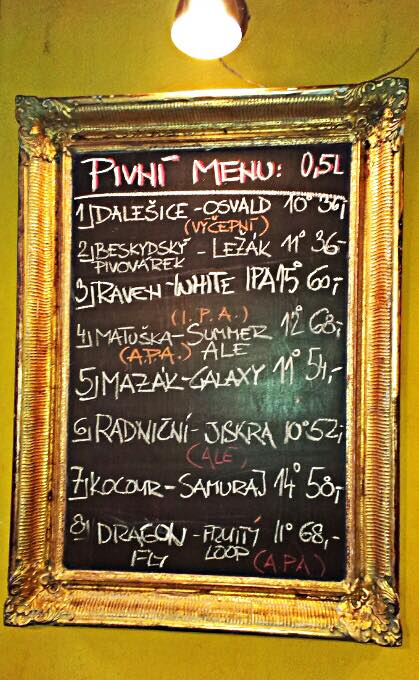 PIVNÍ MENU: 0,5L
1) DALEŠICE - OSVALD 10° 36,-
(VÝČEPNÍ)
2) BESKYDSKÝ PIVOVÁREK - LEŽÁK 11° 36-
3) RAVEN - WHITE IPA 15° 60,-
(I.P.A.)
4) MATUŠKA - SUMMER ALE 12° 68,-
(A.P.A.)
5) MAZÁK - GALAXY 11° 54,-
6) RADNIČNÍ - JISKRA 10° 52,-
(ALE)
7) KOCOUR - SAMURAJ 14° 58,-
8) DRAGON FLY - FRUITY LOOP 11° 68,-
(APA)